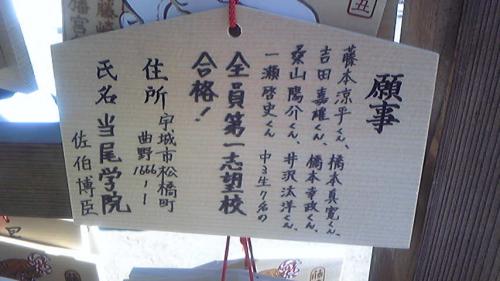 願事
藤本涼平くん、橋本真寛くん、
吉田嘉曜くん、橋本幸政くん、
桑山陽介くん、井沢汰洋くん、
一瀬啓史くん 中3生7名の
全員第一志望校
合格!
住所 宇城市松橋町
曲野1666-1
氏名 当尾学院
佐伯博臣
丑